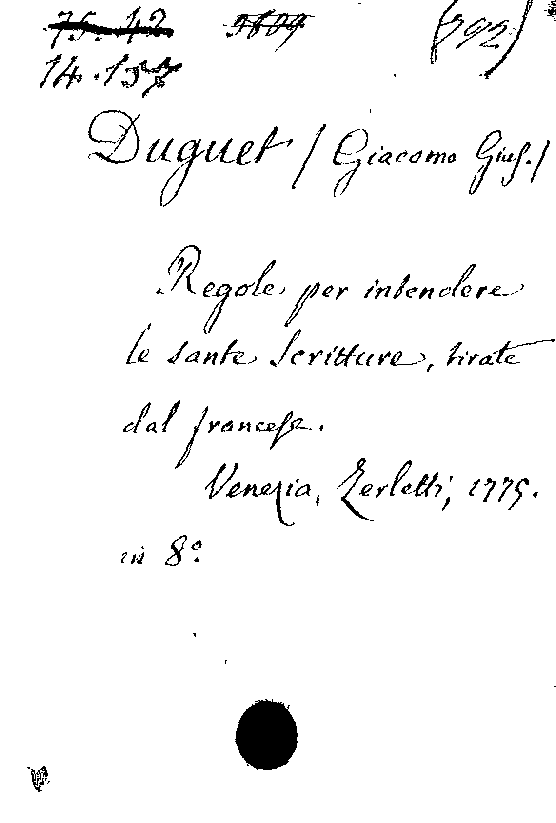 75. 42 3609 (792)
14.157
Duguet / Giacomo Gius./
Regole per intendere
le sante Scritture, tirate
dal francese.
Venezia, Zerletti, 1775.
in 8°